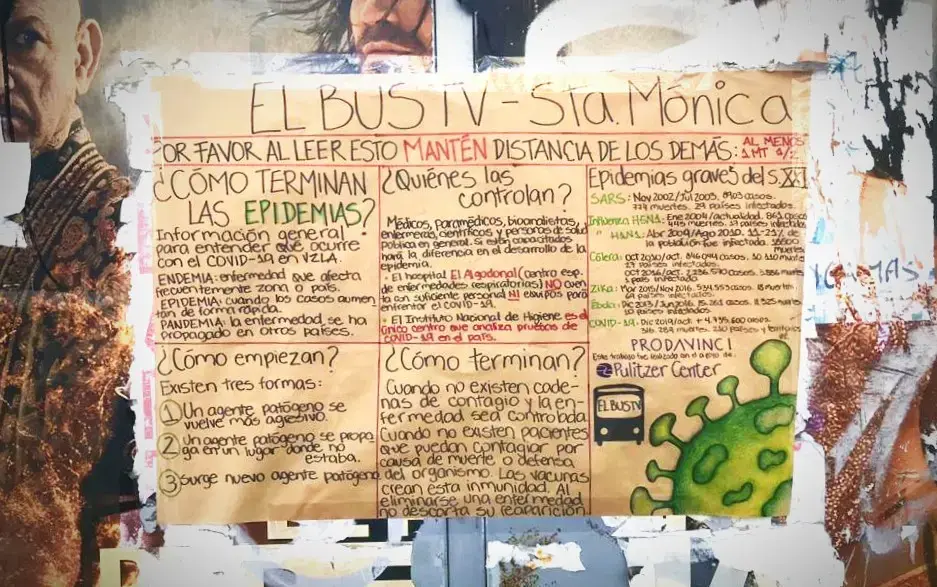 EL BUS TV - Sta. Mónica
POR FAVOR AL LEER ESTO MANTÉN DISTANCIA DE LOS DEMÁS: AL MENOS 1 MT 1/2
¿CÓMO TERMINAN
LAS EPIDEMIAS?
Información general
para entender qué ocurre
con el COVID-19 en VZLA.
ENDEMIA: enfermedad que afecta
frecuentemente zona o país.
EPIDEMIA: cuando los casos aumen
tan de forma rápida.
PANDEMIA: la enfermedad se ha
propagado en varios países.
¿Quiénes las
controlan?
Médicos, paramédicos, bioanalistas,
enfermeras, científicos y personas de salud
pública en general. Si están capacitados
hará la diferencia en el desarrollo de la
epidemia.
• El hospital El Algodonal (centro esp.
de enfermedades respiratorias) NO cuen
ta con suficiente personal NI equipos para
enfrentar el COVID-19.
• El Instituto Nacional de Higiene es el
único centro que analiza pruebas de
COVID-19 en el país.
Epidemias graves del s.XXI
SARS: Nov 2002/Jul 2003. casos
774 muertes. 29 países infectados.
Influenza H5N1: Ene 2004/actualidad. 861 casos
455 muertes. 17 países infectados
" H1N1: Abr 2009/Ago 2010. 11-21% de
la población fue infectada. muertes
Cólera: oct 2010/oct.
países infectados
oct 2016/oct.
Zika: Mar 2015/Nov 2016.
países infectados.
Ébola: Dic 2013/Jun 2016.
10 países infectados.
COVID-19: Dic 2019/act + 4.735.600 casos
muertes. 210 países y territorios
PRODAVINCI
Este trabajo fue realizado en el apoyo de:
Pulitzer Center
EL BUS TV
¿Cómo empiezan?
Existen tres formas:
1 Un agente patógeno se
vuelve más agresivo.
2 Un agente patógeno se propa
ga en un lugar donde no
estaba.
3 Surge nuevo agente patógeno
¿Cómo terminan?
Cuando no existen cade-
nas de contagio y la en-
fermedad sea controlada.
Cuando no existen pacientes
que puedan contagiar por
causa de muerte o defensa
del organismo. Las vacunas
crean esta inmunidad. Al
eliminarse una enfermedad
no descarta su reaparición
MAS